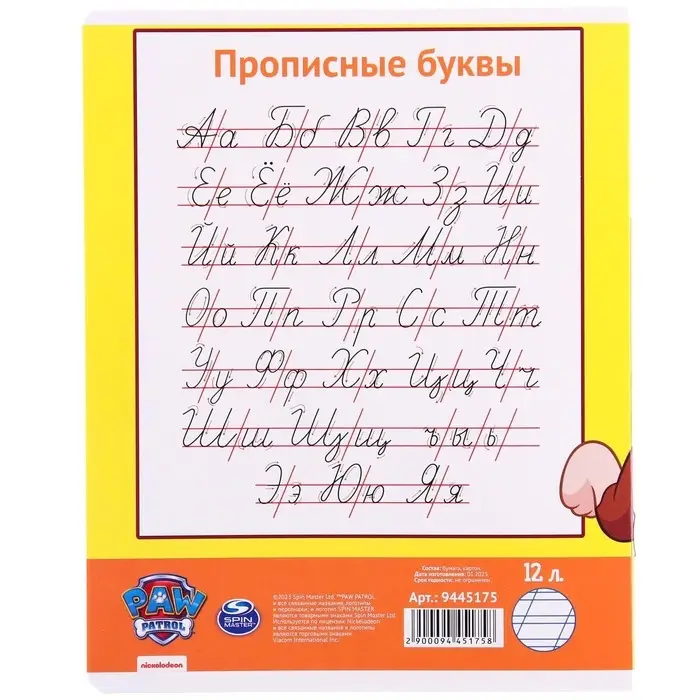 Прописные буквы
Аа Бб Вв Гг Дд
Ее Ёё Жж Зз Ии
Йй Кк Лл Мм Нн
Оо Пп Рр Сс Тт
Уу Фф Хх Цц Чч
Шш Щщ ъ ы ь
Ээ Юю Яя
PAW
PATROL
nickelodeon
SPIN
MASTER
©2023 Spin Master Ltd. ™PAW PATROL
и все связанные названия, логотипы
и персонажи, и логотип SPIN MASTER
являются товарными знаками Spin Master Ltd.
Используется по лицензии. Nickelodeon
и все связанные названия и логотипы
являются торговыми знаками
Viacom International Inc.
Состав: бумага, картон.
Дата изготовления: 01.2023.
Срок годности: не ограничен.
Арт.: 9445175
2 900094 451758
12 л.